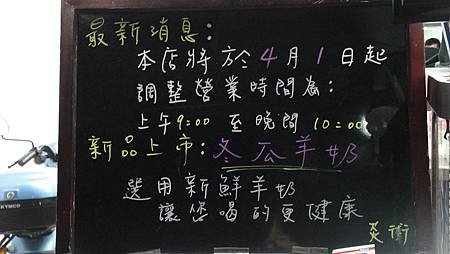 最新消息:
本店將於4月1日起
調整營業時間為:
上午9:00 至晚間 10:00
新品上市:冬瓜羊奶
選用新鮮羊奶
讓您喝的更健康
炎術
KYMCO